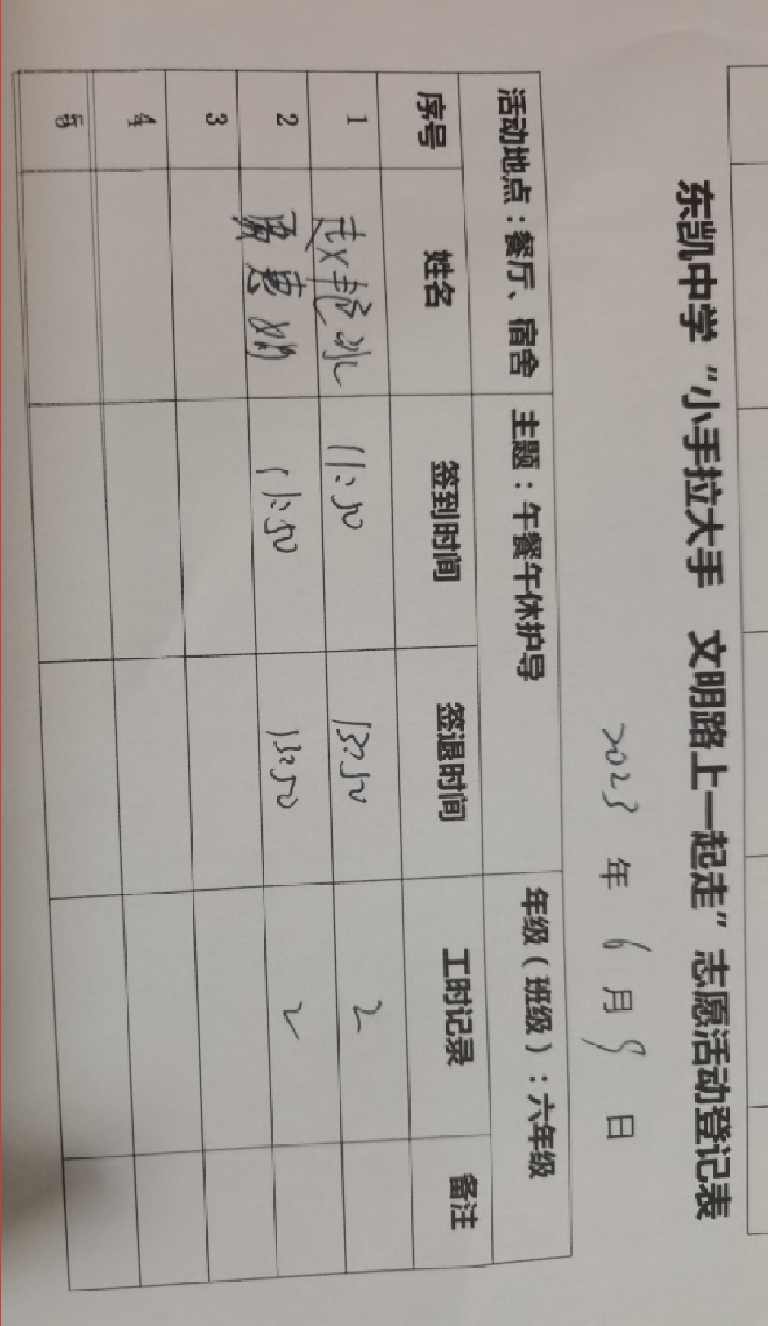 东凯中学“小手拉大手 文明路上一起走”志愿活动登记表
2023 年 6 月 9 日
活动地点：餐厅、宿舍 主题：午餐午休护导 年级（班级）：六年级
序号 姓名 签到时间 签退时间 工时记录 备注
1 赵艳冰 11:50 13:50 2
2 11:50 13:50 2
3
4
5